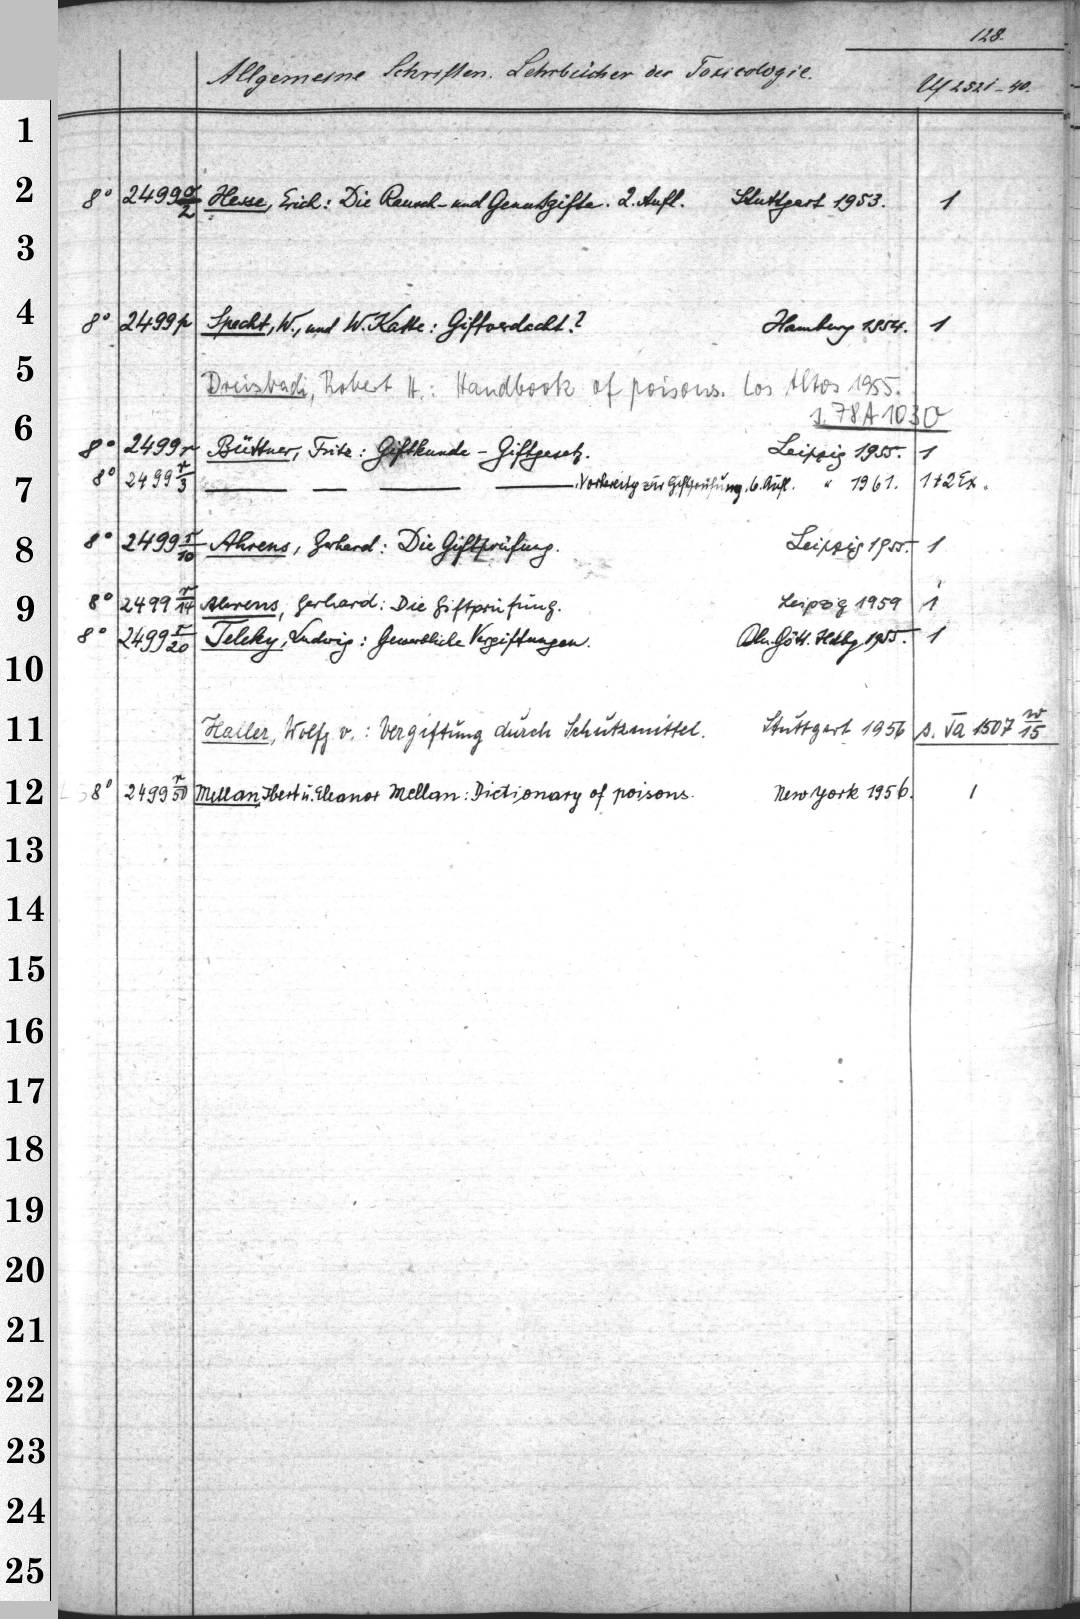 128.
Allgemeine Schriften. Lehrbücher der Toxicologie.
2521-40.
1
2 8° 2499 o/2 Hesse, Erich: Die Rausch- und Genußgifte. 2. Aufl. Stuttgart 1953. 1
3
4 8° 2499p Specht, W., und W. Katte: Giftverdacht? Hamburg 1954. 1
5 Dreisbach, Robert H.: Handbook of poisons. Los Altos 1955.
6 s. 78A1030
8° 2499r Büttner, Fritz: Giftkunde – Giftgesetz. Leipzig 1955. 1
7 8° 2499 r/3 — — — — Vorbereitg zur Giftprüfung. 6. Aufl. " 1961. 1+2Ex.
8 8° 2499 r/10 Ahrens, Gerhard: Die Giftprüfung. Leipzig 1955. 1
9 8° 2499 r/14 Ahrens, Gerhard: Die Giftprüfung. Leipzig 1959 1
8° 2499 r/20 Teleky, Ludwig: Gewerbliche Vergiftungen. Bln. Gött. Hdbg. 1955. 1
10
11 Haller, Wolfg. v.: Vergiftung durch Schutzmittel. Stuttgart 1956 s. Va 1507 w/15
12 8° 2499 r/50 Mellan, Ibert u. Eleanor Mellan: Dictionary of poisons. New York 1956. 1
13
14
15
16
17
18
19
20
21
22
23
24
25